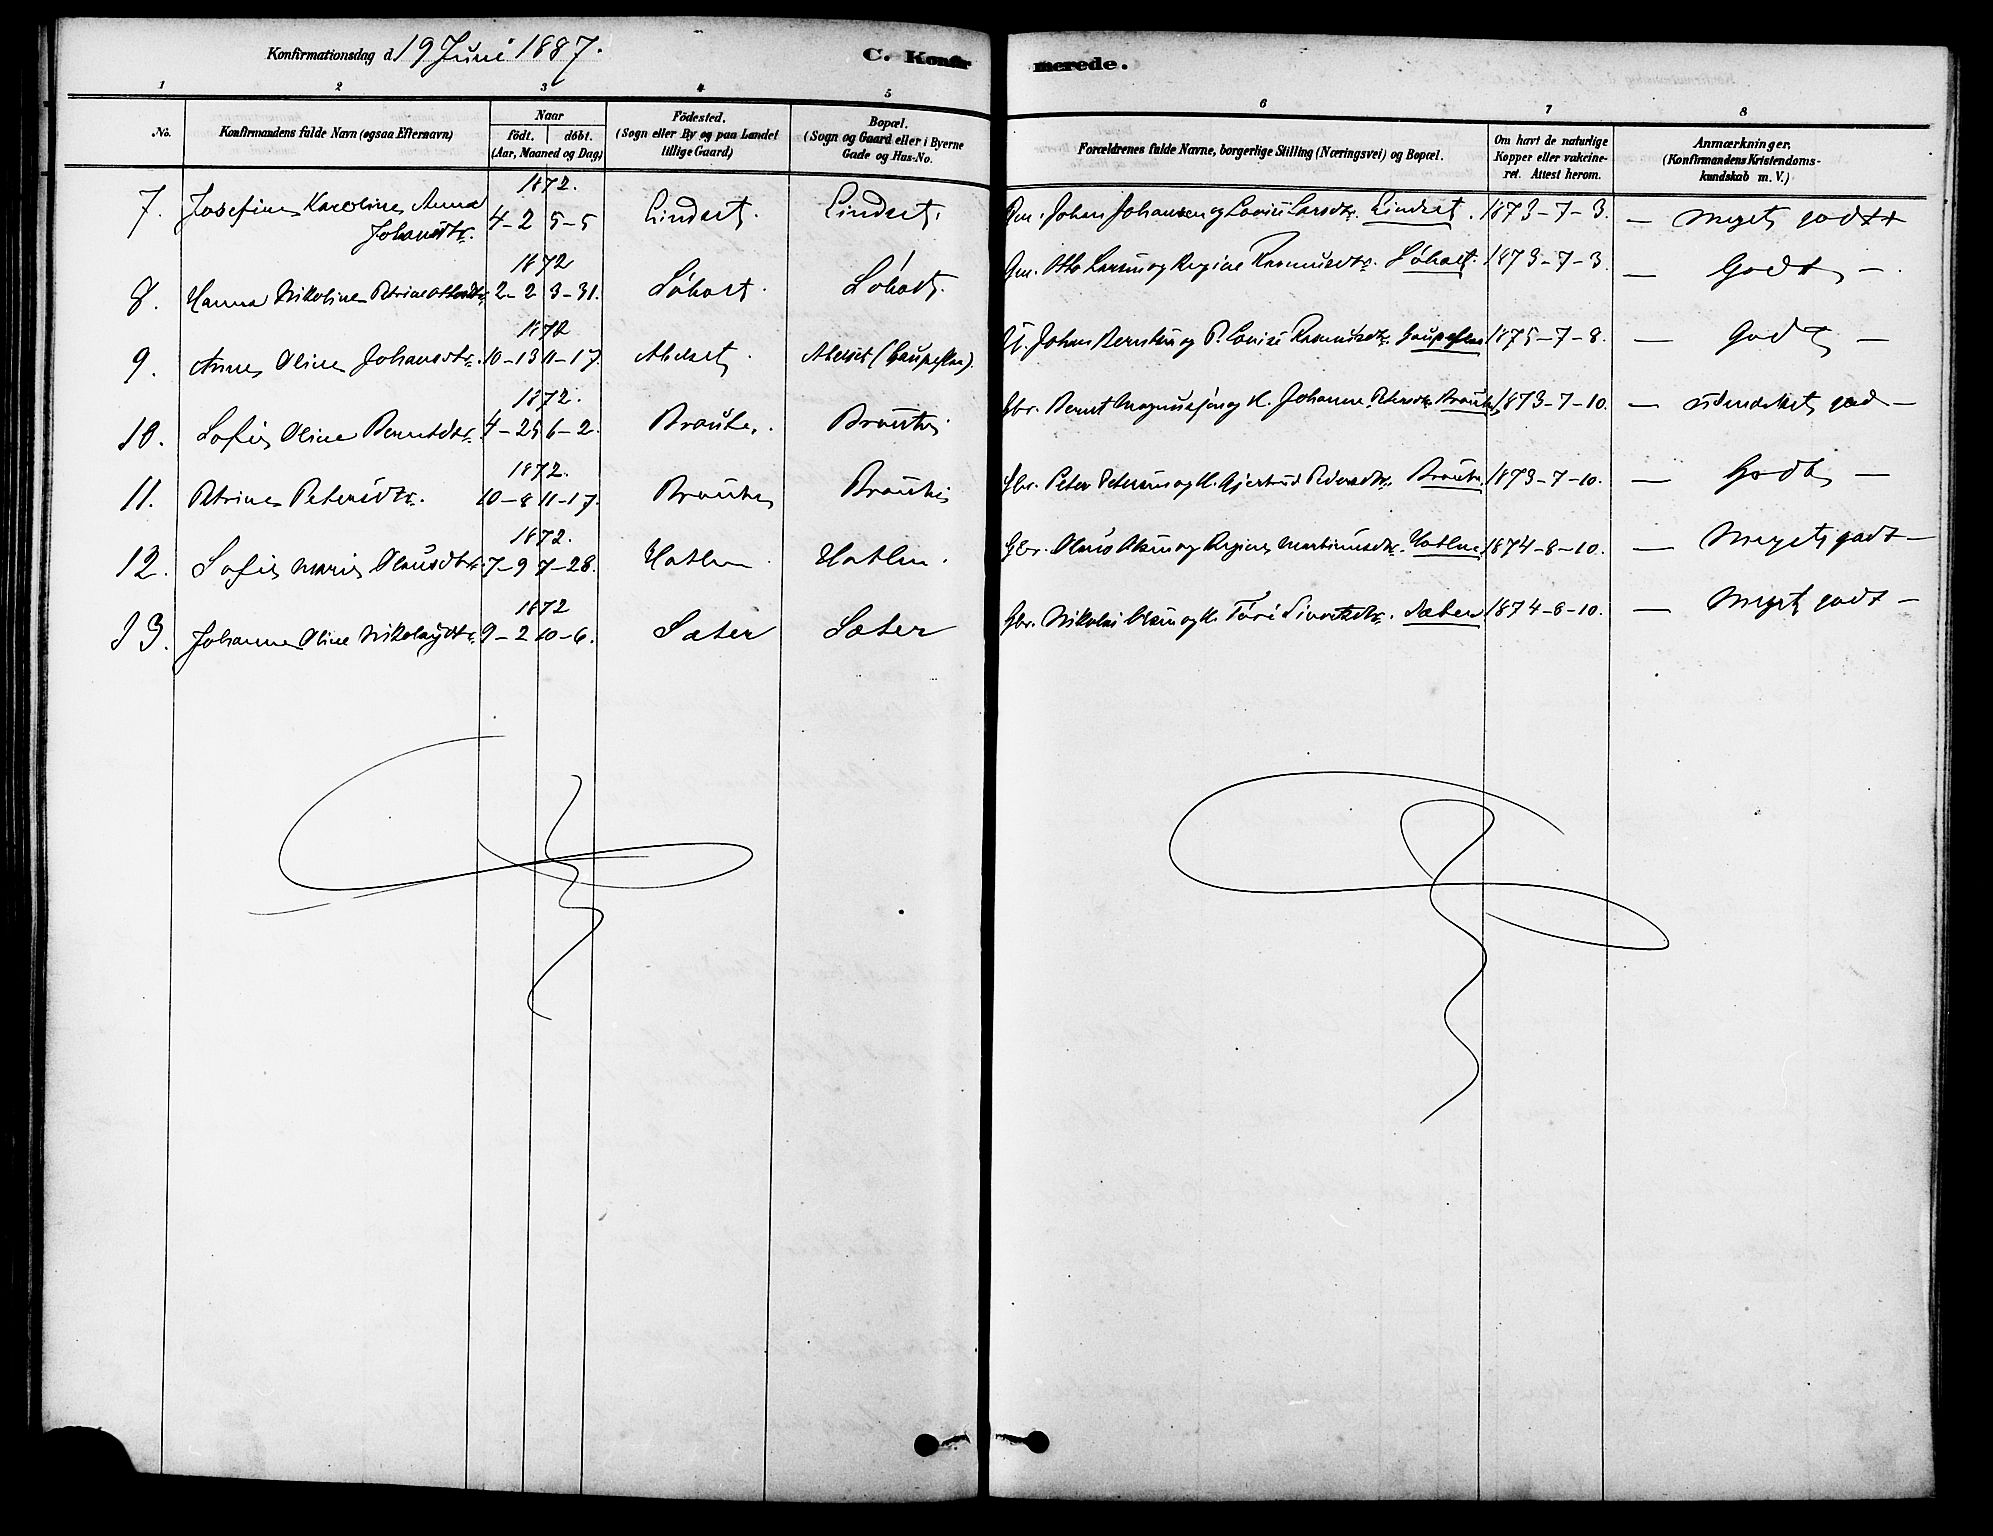 Konfirmationsdag d. 19 Juni 1887.
C. Konfir
merede.
1 2 3 4 5 6 7 8
No. Konfirmandens fulde Navn (ogsaa Efternavn)
Naar
födt. döbt.
(Aar, Maaned og Dag)
Födested.
(Sogn eller By og paa Landet
tillige Gaard)
Bopæl.
(Sogn og Gaard eller i Byerne
Gade og Hus-No.
Forældrenes fulde Navne, borgerlige Stilling (Næringsvei) og Bopæl.
Om havt de naturlige
Kopper eller vakcine-
ret. Attest herom.
Anmærkninger.
(Konfirmandens Kristendoms-
kundskab m. V.)
1872.
7. Josefine Karoline Anna 4-2 5-5 Lindset. Lindset. Gm. Johan Johansen og Lovise Larsdtr. Lindset. 1873-7-3. — meget godt +
Johansdtr.
1872
8. Hanna Nikoline Petrine Ottosdtr. 2-2 3-31. Løhaet. Løhaet. Gm. Otto Larsen og Regine Rasmusdtr. Løhaet. 1873-7-3. — Godt —
1872
9. Anne Oline Johansdtr. 10-13 11-17 Alvest. Johan Berntsen og P. Lovise Rasmusdtr. 1875-7-8. — Godt —
1872.
10. Sofie Oline Berntsdtr. 4-25 6-2. Braute. Braute Gbr. Bernt Magnussen og H. Johanne Petersdtr. Braute 1873-7-10. — udmerket god —
1872.
11. Petrine Petersdtr. 10-8 11-17. Braute Braute Gbr. Peter Petersen og H. Gjertrud Pedersdtr. Braute. 1873-7-10. — Godt —
1872.
12. Sofie Marie Olausdtr. 7-9 7-28. Hatlen Hatlen. Gbr. Olaus Olsen og Regine Martinusdtr. Hatlen 1874-8-10. — Meget godt —
1872
13. Johanne Oline Nikolaydtr. 9-2 10-6. Sæter Sæter Gbr. Nikolai Olsen og H. Turi Sivertsdtr. Sæter 1874-8-10. — Meget godt —